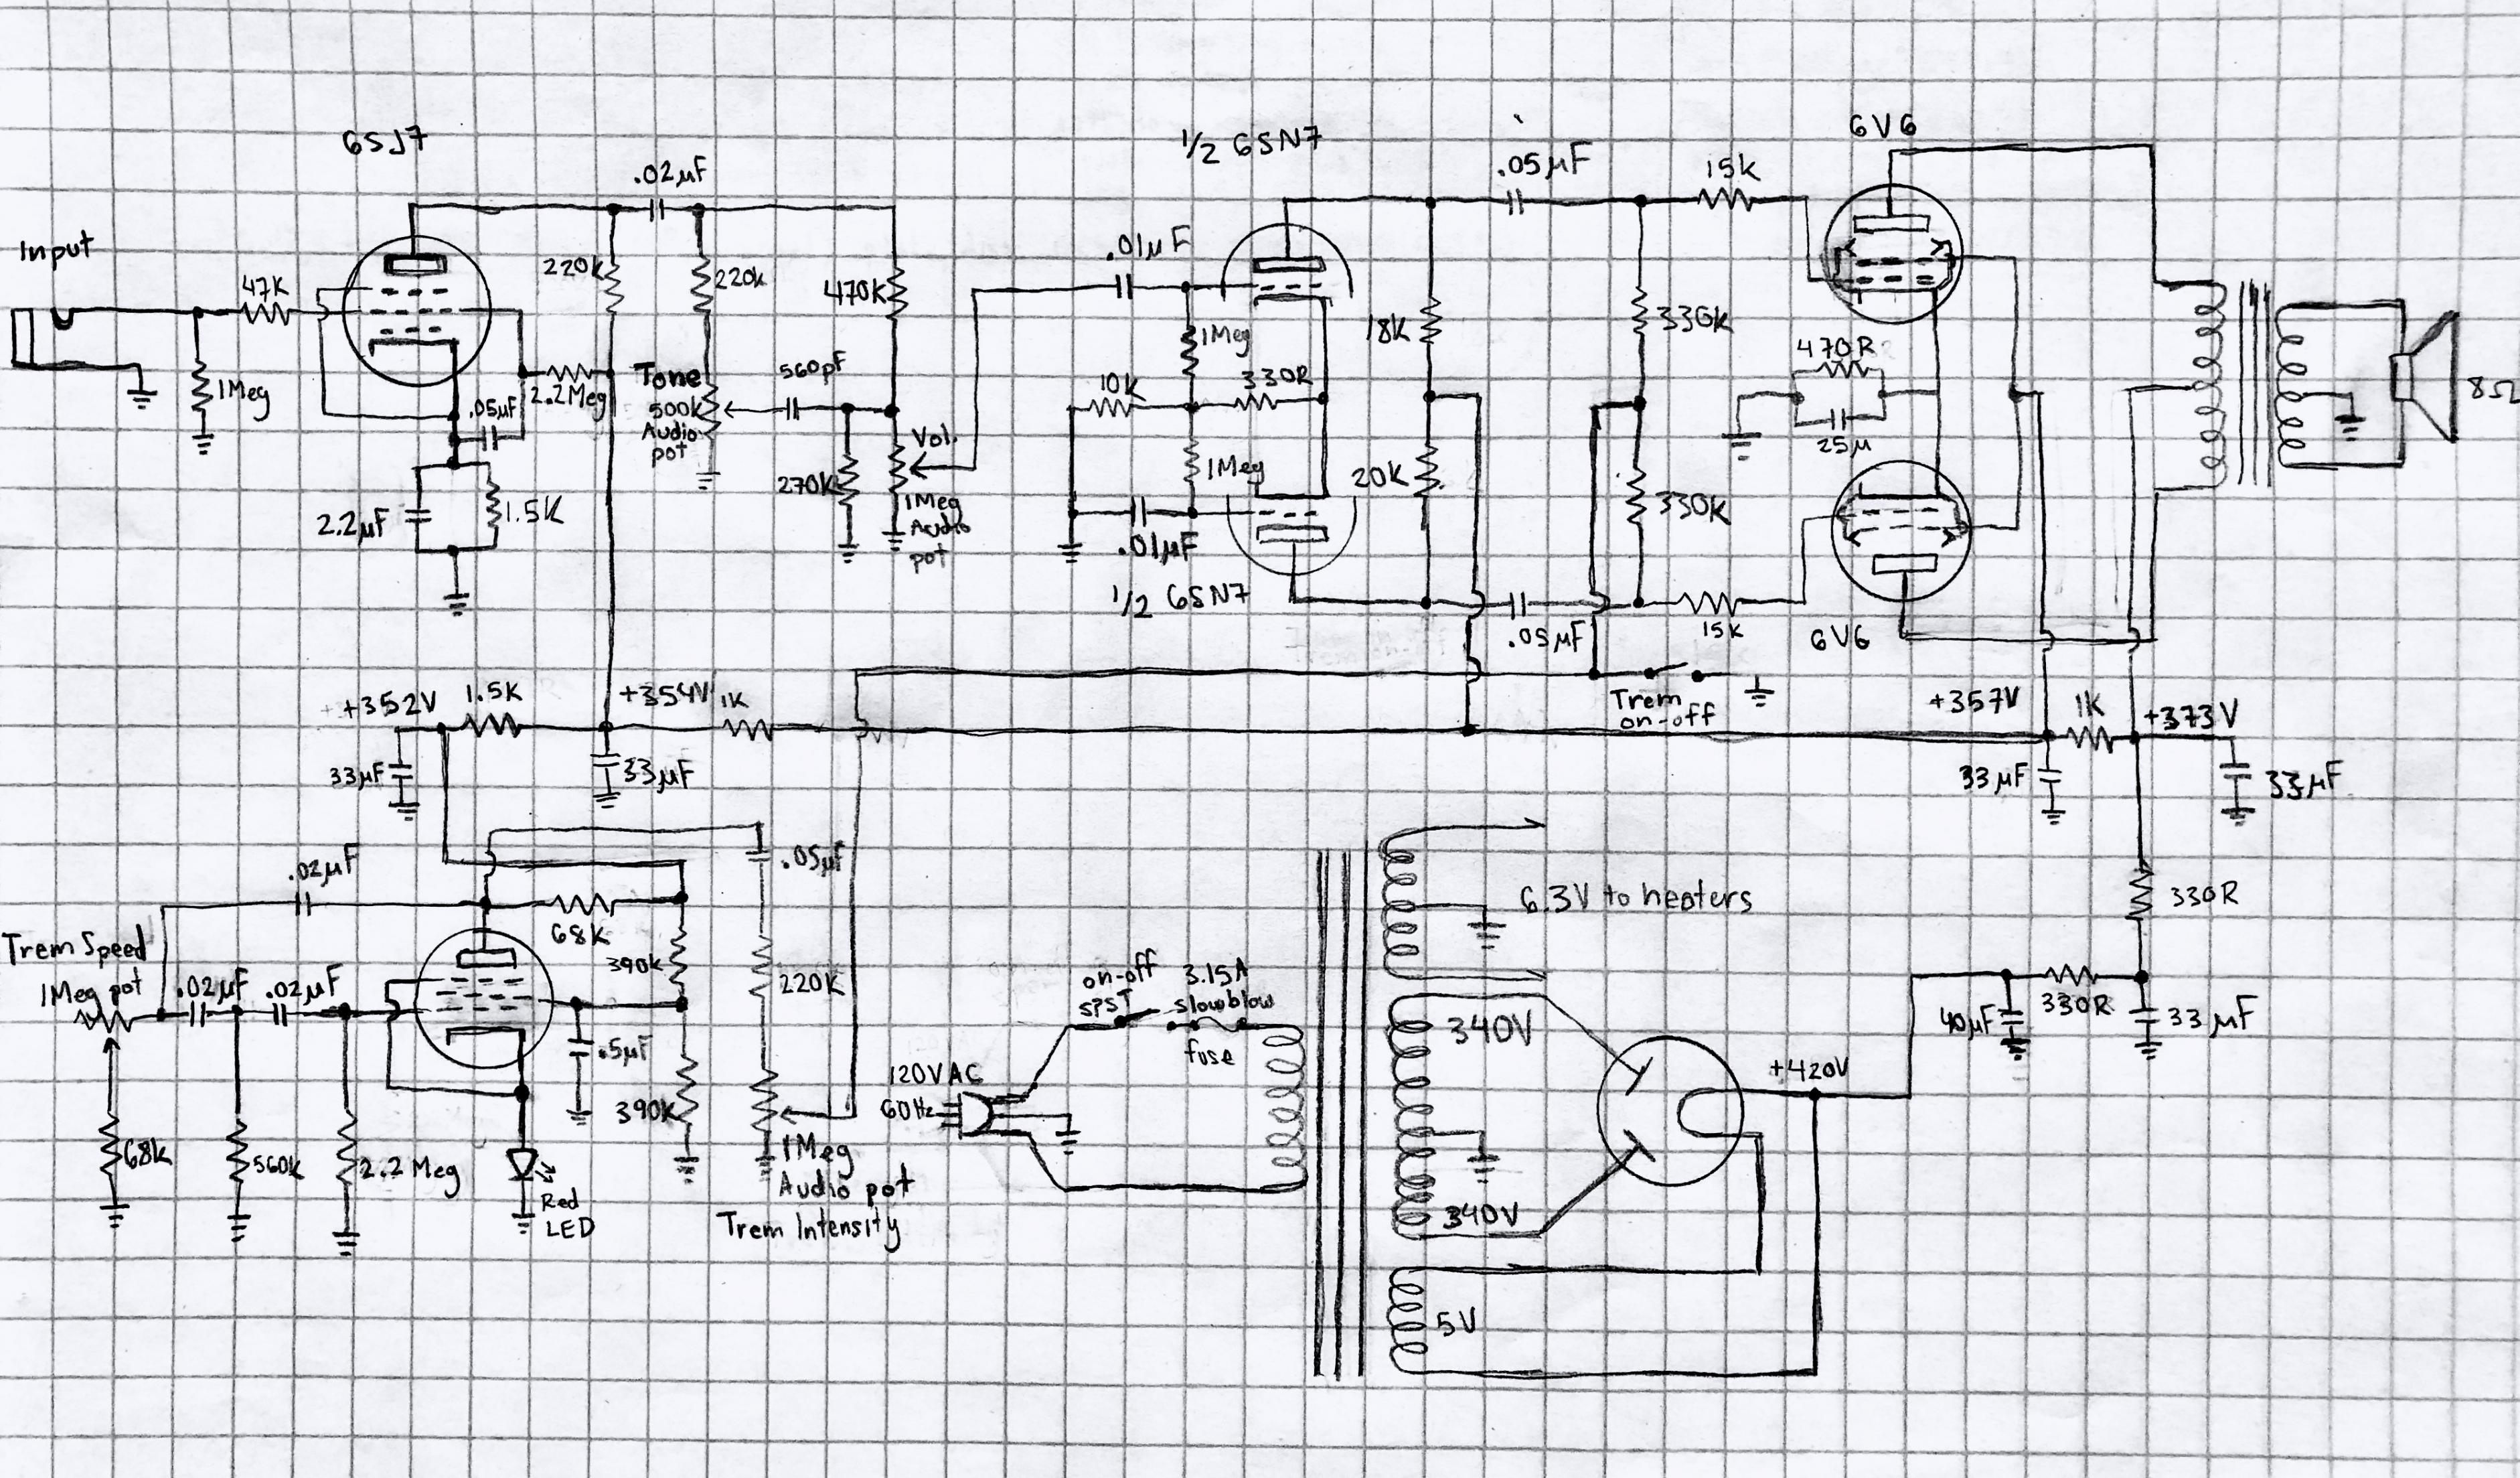 6SJ7
1/2 6SN7
6V6
.02µF
.05µF
15K
Input
.01µF
47K
220K
220K
470K
1Meg
18K
330K
470R
1Meg
.05µF
2.2Meg
Tone
500k
Audio
pot
560pF
10K
330R
8Ω
25µ
Vol.
1Meg
20K
270K
1Meg
Audio
pot
330K
2.2µF
1.5K
.01µF
1/2 6SN7
.05µF
15K
6V6
+352V
1.5K
+354V
1K
Trem
on-off
+357V
1K
+373V
33µF
33µF
33µF
33µF
.02µF
.05µF
68K
6.3V to heaters
330R
Trem Speed
1Meg pot
.02µF
.02µF
390K
220K
on-off
SPST
3.15A
slowblow
fuse
340V
40µF
330R
33µF
.5µF
120VAC
60Hz
+420V
390K
68K
560K
2.2 Meg
Red
LED
1Meg
Audio pot
Trem Intensity
340V
5V